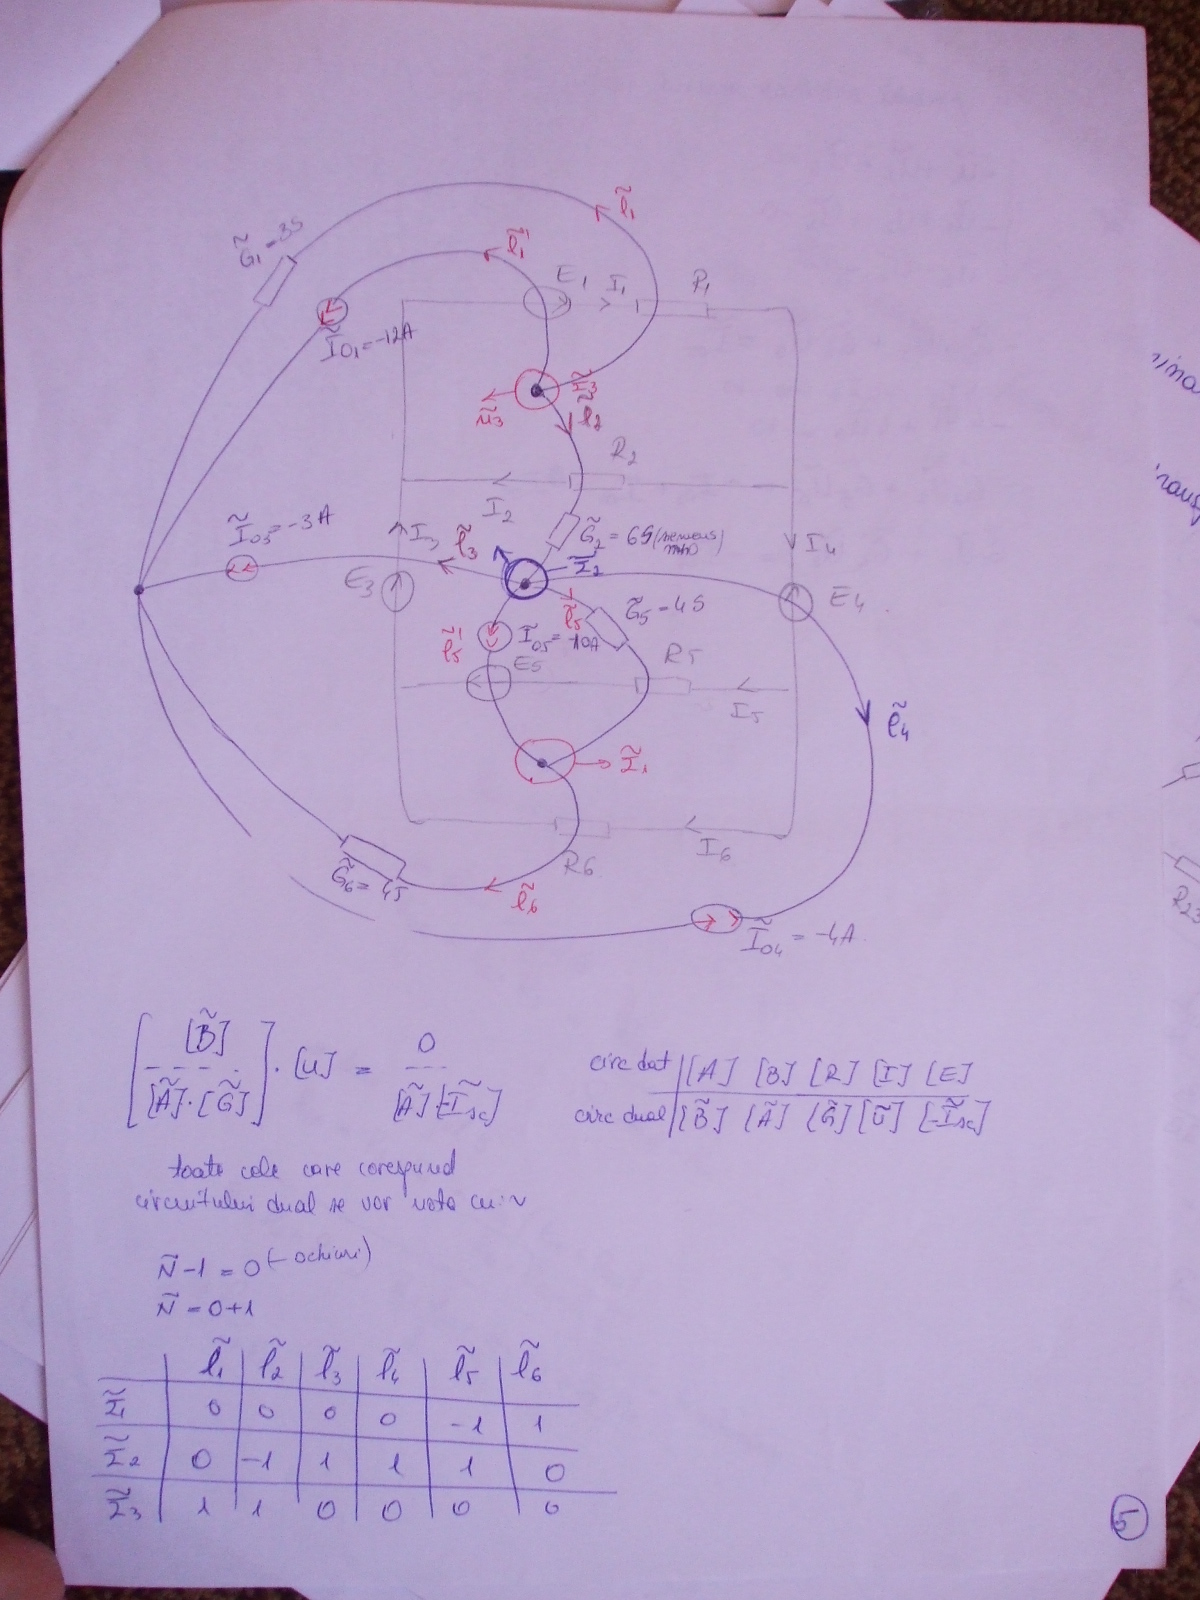 l̃₁
G̃₁=3S
l̃₁'
E₁ I₁ R₁
Ĩ₀₁=-12A
Σ̃₃
ũ₃
l̃₂
R₂
I₂
Ĩ₀₃=-3A
I₃
l̃₃
G̃₂ = 6S (siemens
Σ̃₂
I₄
E₃
E₄
l̃₅
G̃₅=4S
l̃₅'
Ĩ₀₅=-10A
E₅
R₅
I₅
l̃₄
Σ̃₁
I₆
R₆
G̃₆=4S
l̃₆
Ĩ₀₄ = -4A
[B̃]
[Ã]·[G̃]
· [U] =
0
[Ã][-Ĩsc]
circ dat | [A] [B] [R] [I] [E]
circ dual | [B̃] [Ã] [G̃] [Ũ] [-Ĩsc]
toate cele care corespund
circuitului dual se vor nota cu: ~
Ñ-1=0 (-ochiuri)
Ñ=0+1
l̃₁ l̃₂ l̃₃ l̃₄ l̃₅ l̃₆
Σ̃₁ 0 0 0 0 -1 1
Σ̃₂ 0 -1 1 1 1 0
Σ̃₃ 1 1 0 0 0 0
5
R₂₃